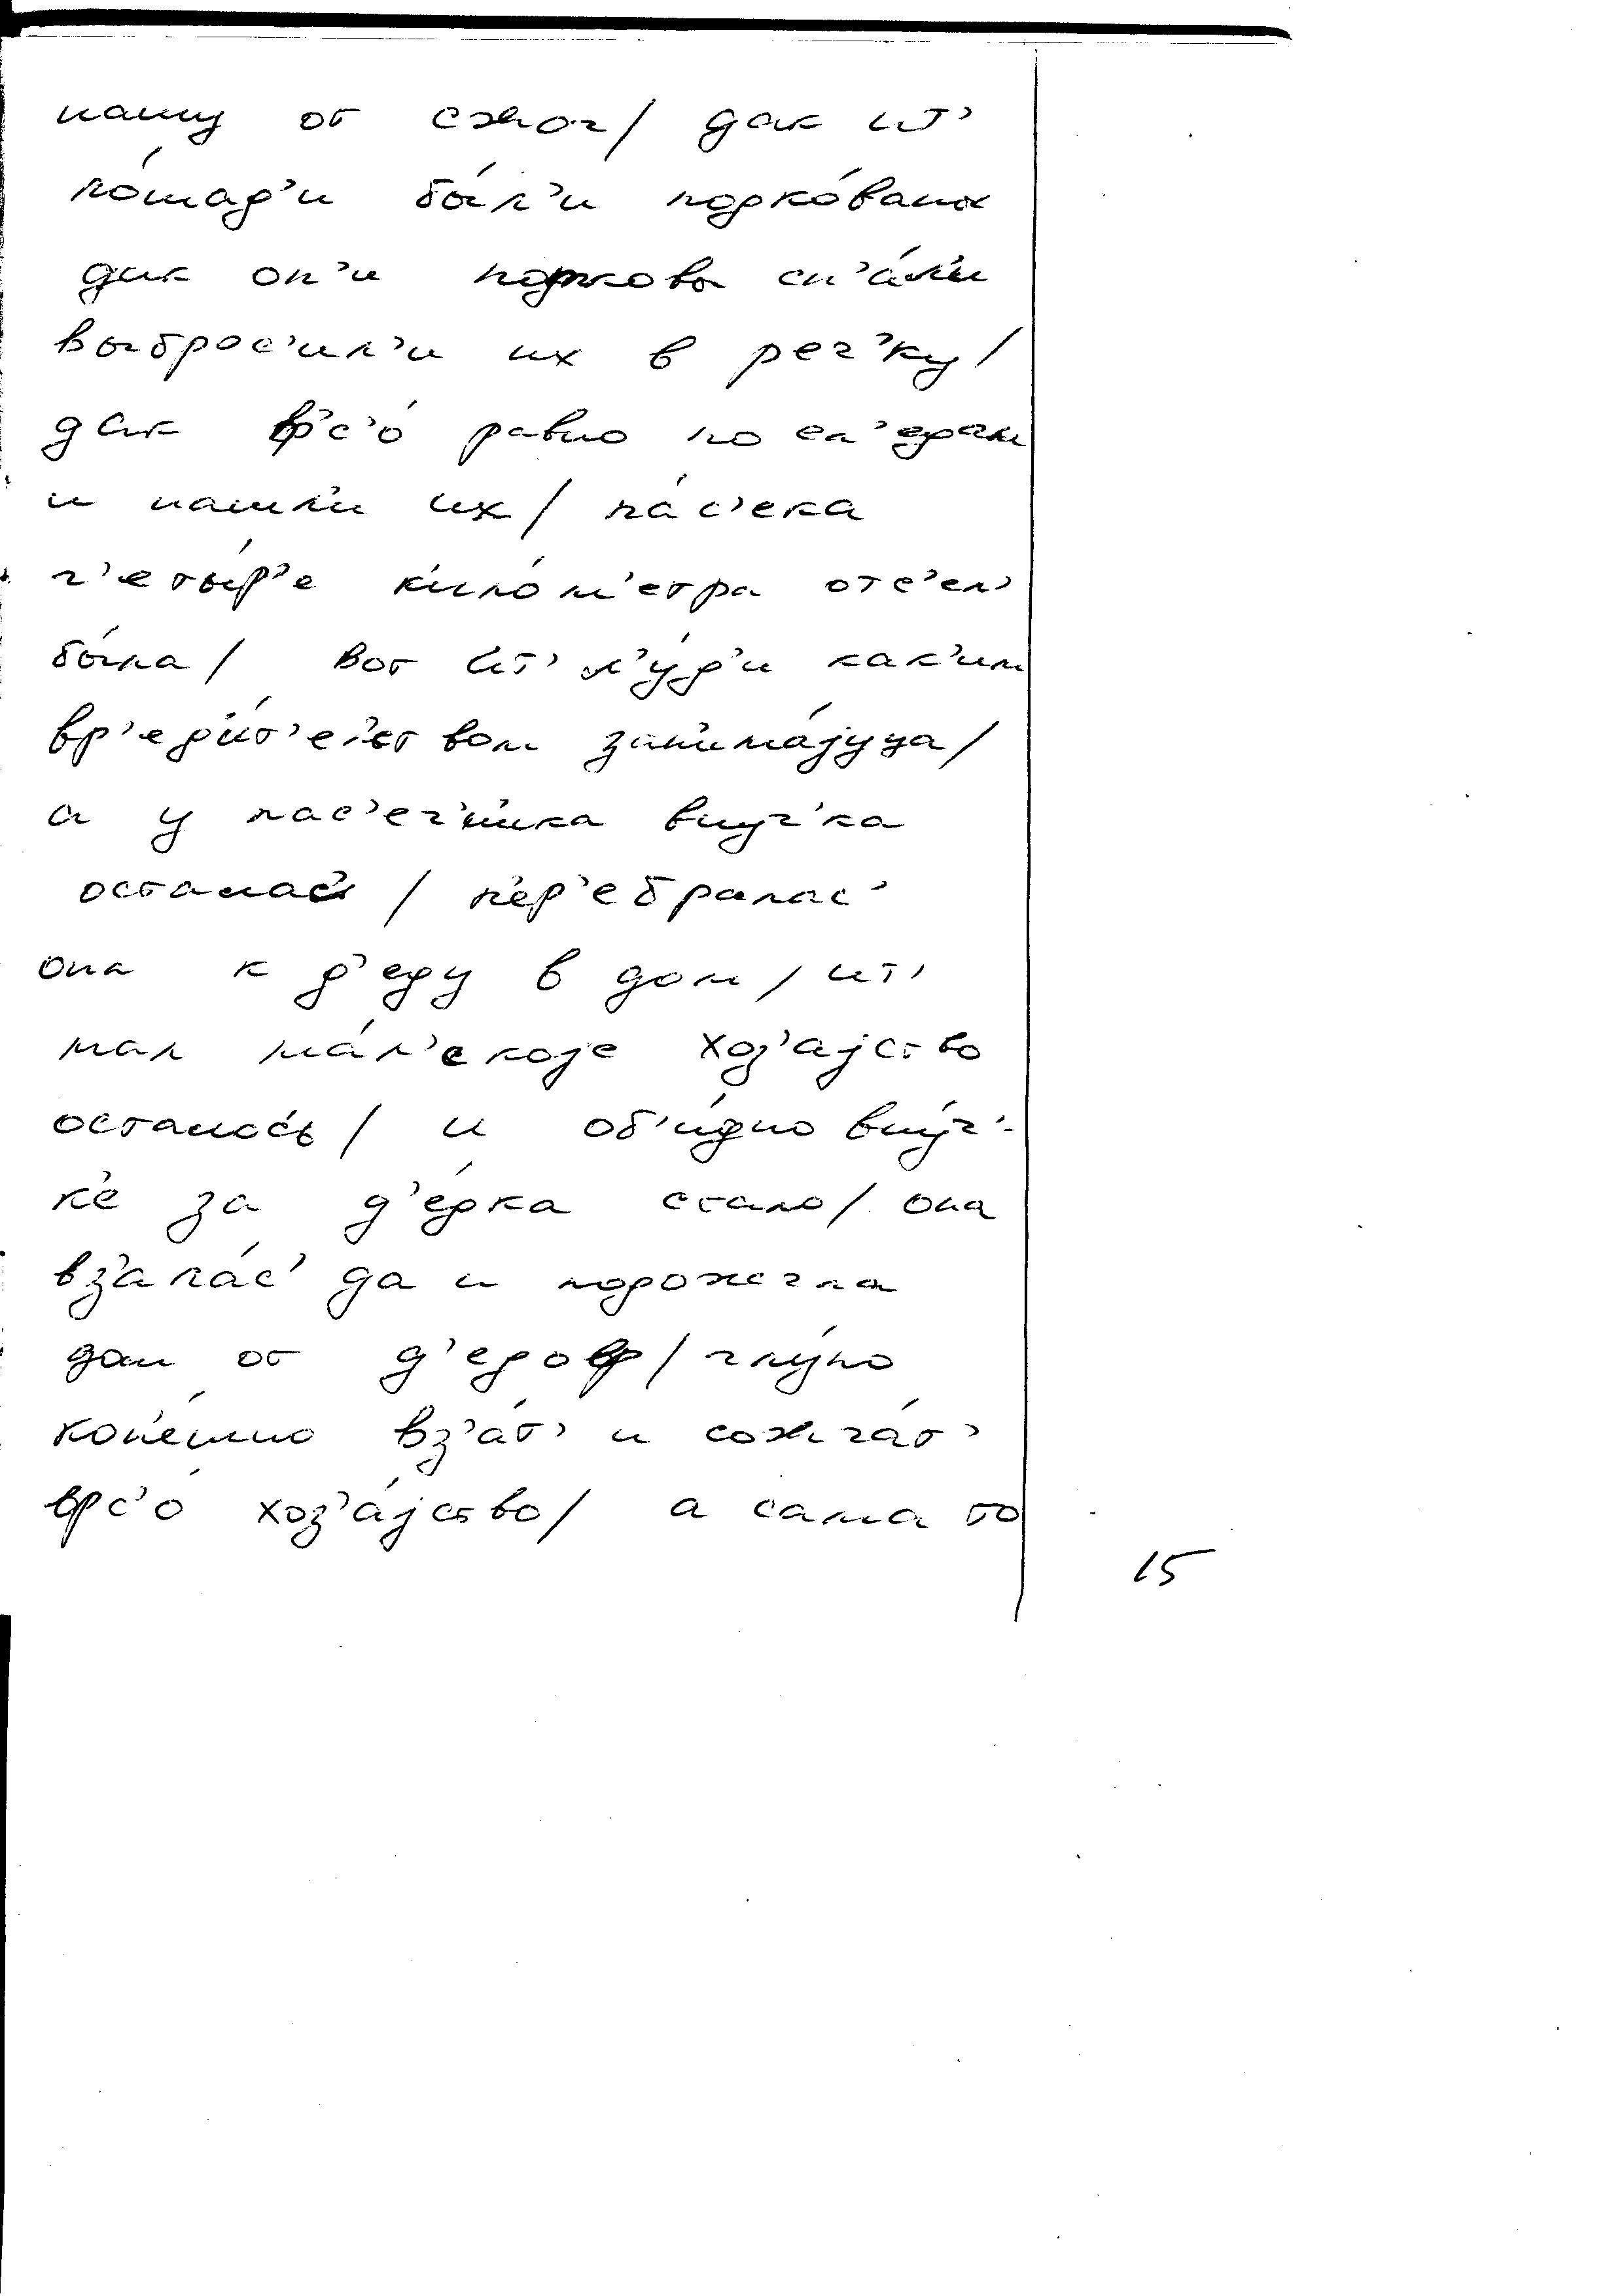 нашу от сжог/ дак ит'
ло́шад'и бы́л'и подко́ваны
дак он'и подковы сн'а́л'и
выброс'ил'и их в реч'ку/
дак фс'о́ равно по сл'едам
и нашл'и их/ па́с'ека
ч'еты́р'е к'ило́м'етра отс'ел'
была/ вот ит' л'у́д'и как'им
вр'ед'и́т'ел'ством зан'има́јуца/
а у пас'еч'н'ика внуч'ка
осталас'/ п'ер'ебралас'
она к д'еду в дом/ ит'
мал ма́л'екоје хоз'ајство
осталось/ и об'и́дно вну́ч'-
к'е за д'е́дка стало/ она
вз'ала́с' да и подожгла
дом от д'едоф/ глу́по
кон'е́шно вз'а́т' и сожга́т'
фс'о́ хоз'а́јство/ а сама то
15